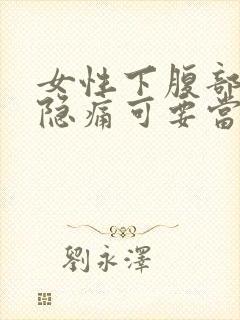 女性下腹部
隐痛可要當
劉永澤